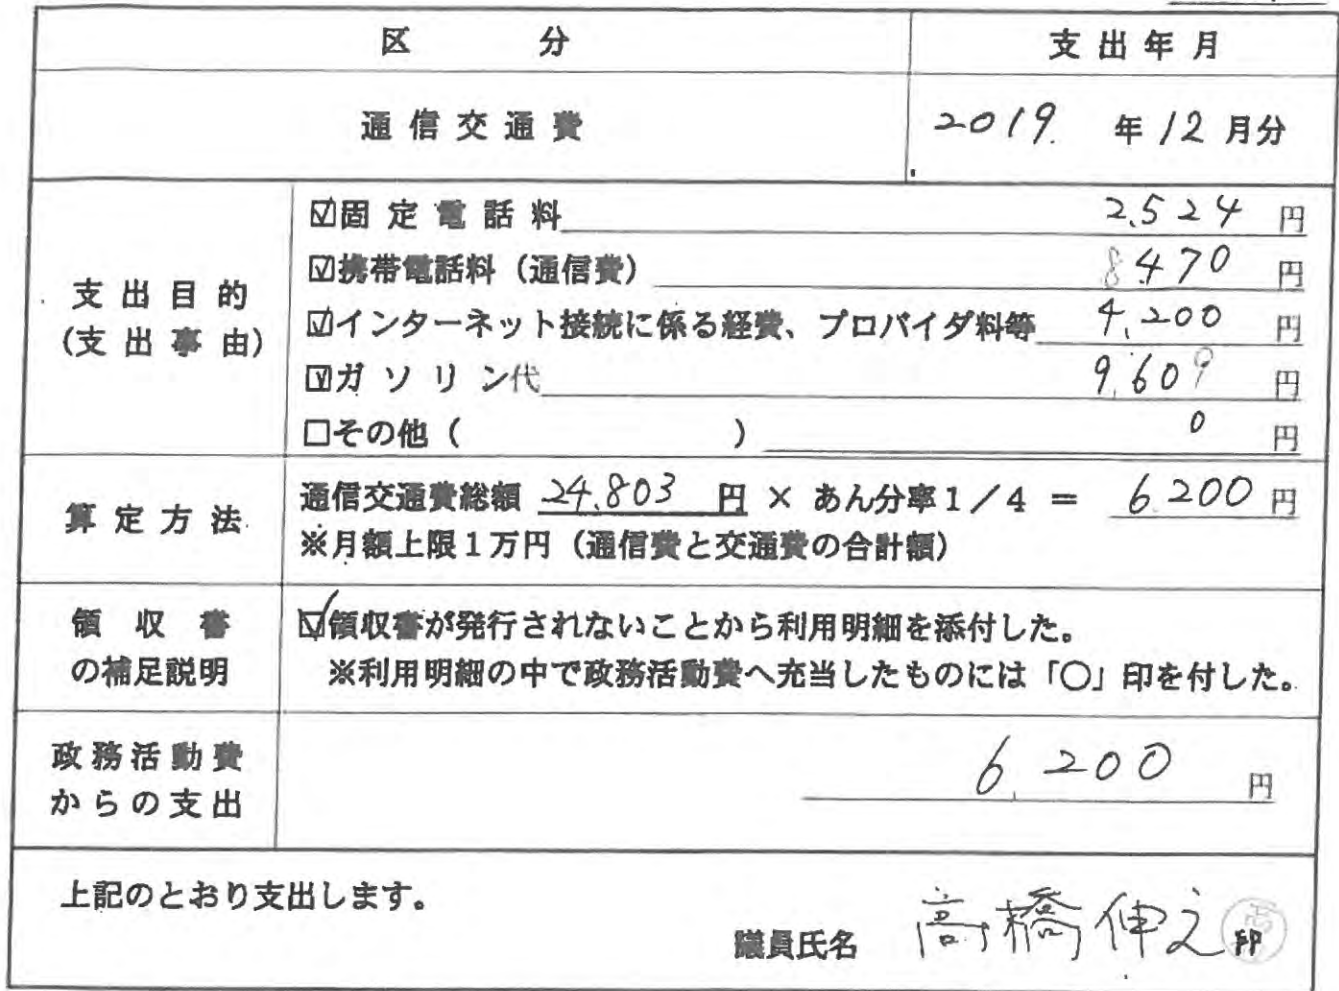 区 分 支出年月
通信交通費 2019. 年 12 月分
支出目的
(支出事由)
☑固定電話料 2,524 円
☑携帯電話料(通信費) 8,470 円
☑インターネット接続に係る経費、プロバイダ料等 4,200 円
☑ガソリン代 9,609 円
□その他( ) 0 円
算定方法
通信交通費総額 24,803 円 × あん分率1/4 = 6,200 円
※月額上限1万円(通信費と交通費の合計額)
領収書
の補足説明
☑領収書が発行されないことから利用明細を添付した。
※利用明細の中で政務活動費へ充当したものには「○」印を付した。
政務活動費
からの支出
6,200 円
上記のとおり支出します。
議員氏名 高橋伸之 印